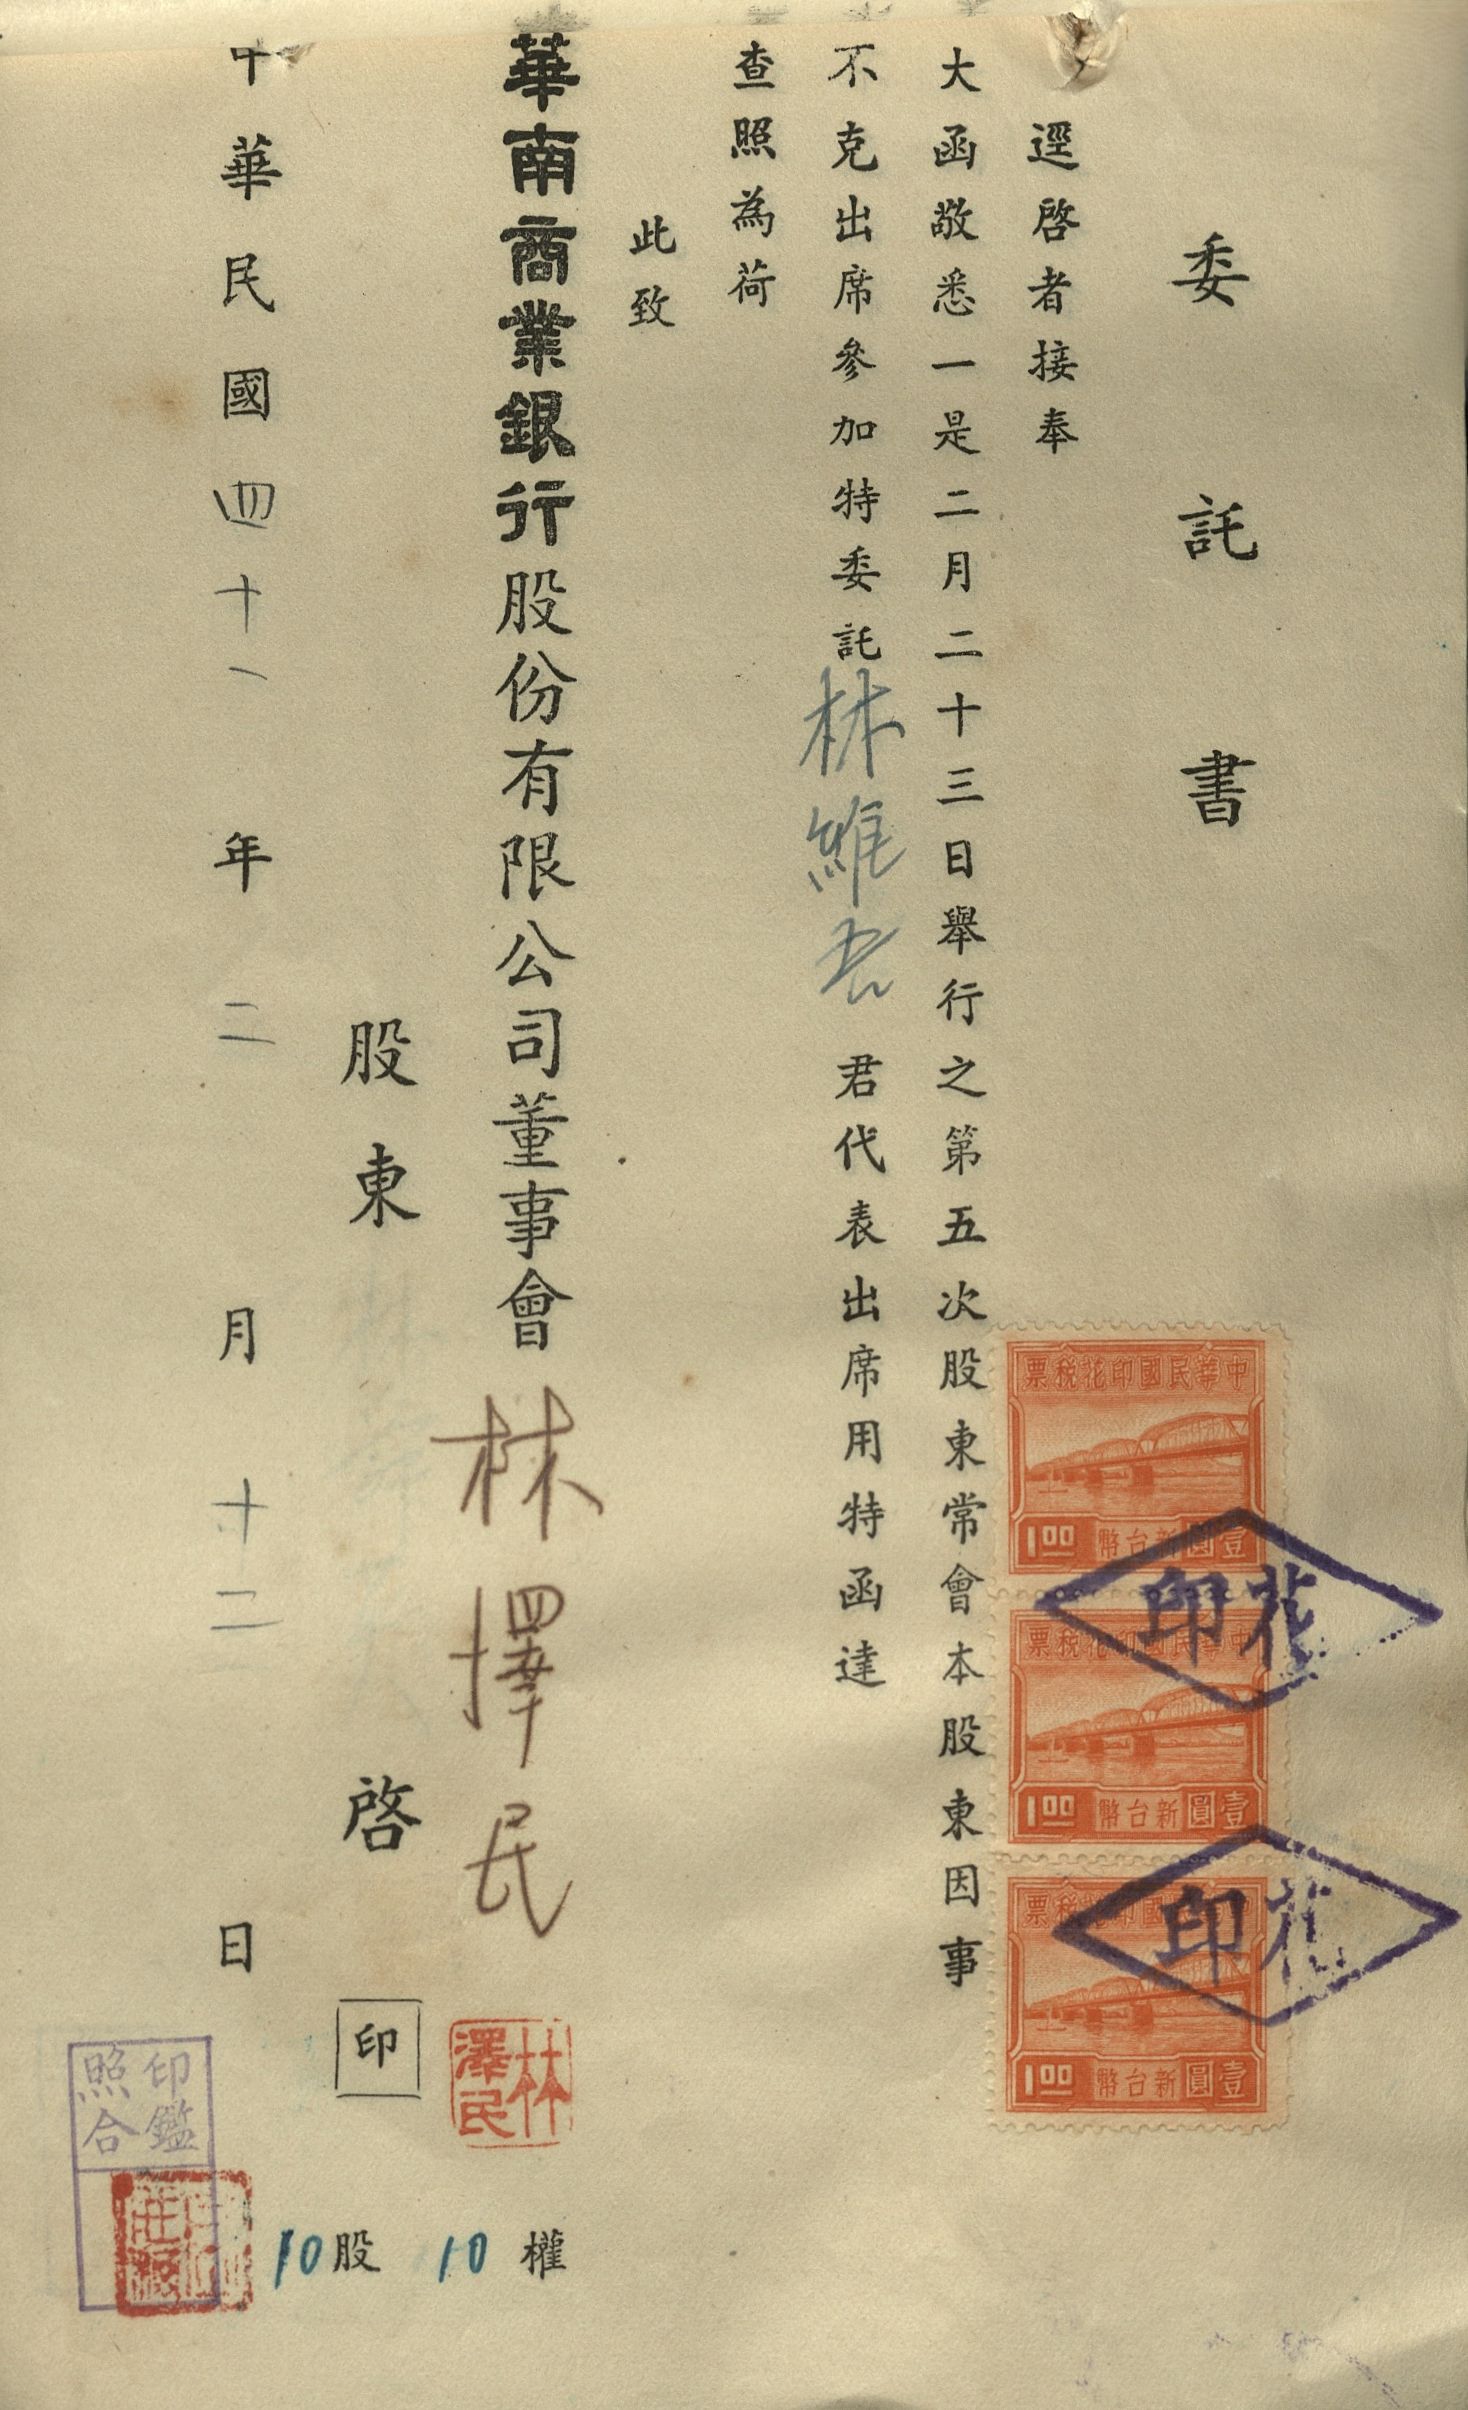 委託書
逕啓者接奉
大函敬悉一是二月二十三日舉行之第五次股東常會本股東因事
不克出席參加特委託林維吾君代表出席用特函達
查照為荷
此致
華南商業銀行股份有限公司董事會
林擇民
林澤民
股東 啓 印
10股 10權
中華民國四十一年二月十二日
中華民國印花稅票
1.00 壹圓新台幣
中華民國印花稅票
1.00 壹圓新台幣
國印花稅票
1.00 壹圓新台幣
印花
印花
印鑑
照合